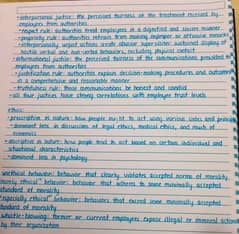 •interpersonal justice: the perceived fairness of the treatment received by
employees from authorities
•respect rule: authorities treat employees in a dignified and sincere manner
•propriety rule: authorities refrain from making improper or offensive remarks
•interpersonally unjust actions create abusive supervision: sustained display of
hostile verbal and non-verbal behaviors, excluding physical contact
•informational justice: the perceived fairness of the communications provided to
employees from authorities
•justification rule: authorities explain decision-making procedures and outcomes
in a comprehensive and reasonable manner
•truthfulness rule: those communications be honest and candid
•all four justices have strong correlations with employee trust levels
Ethics:
•prescriptive in nature: how people ought to act using various codes and principles
•dominant lens in discussion of legal ethics, medical ethics, and much of
economics
•descriptive in nature: how people tend to act based on certain individual and
situational characteristics
•dominant lens in psychology
unethical behavior: behavior that clearly violates accepted norms of morality
"merely ethical" behavior: behavior that adheres to some minimally accepted
standard of morality
"especially ethical" behavior: behaviors that exceed some minimally accepted
standard of morality
whistle-blowing: former or current employees expose illegal or immoral actions
by their organization